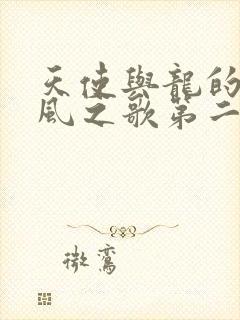 天使與龍的
風之歌第二
微鸞